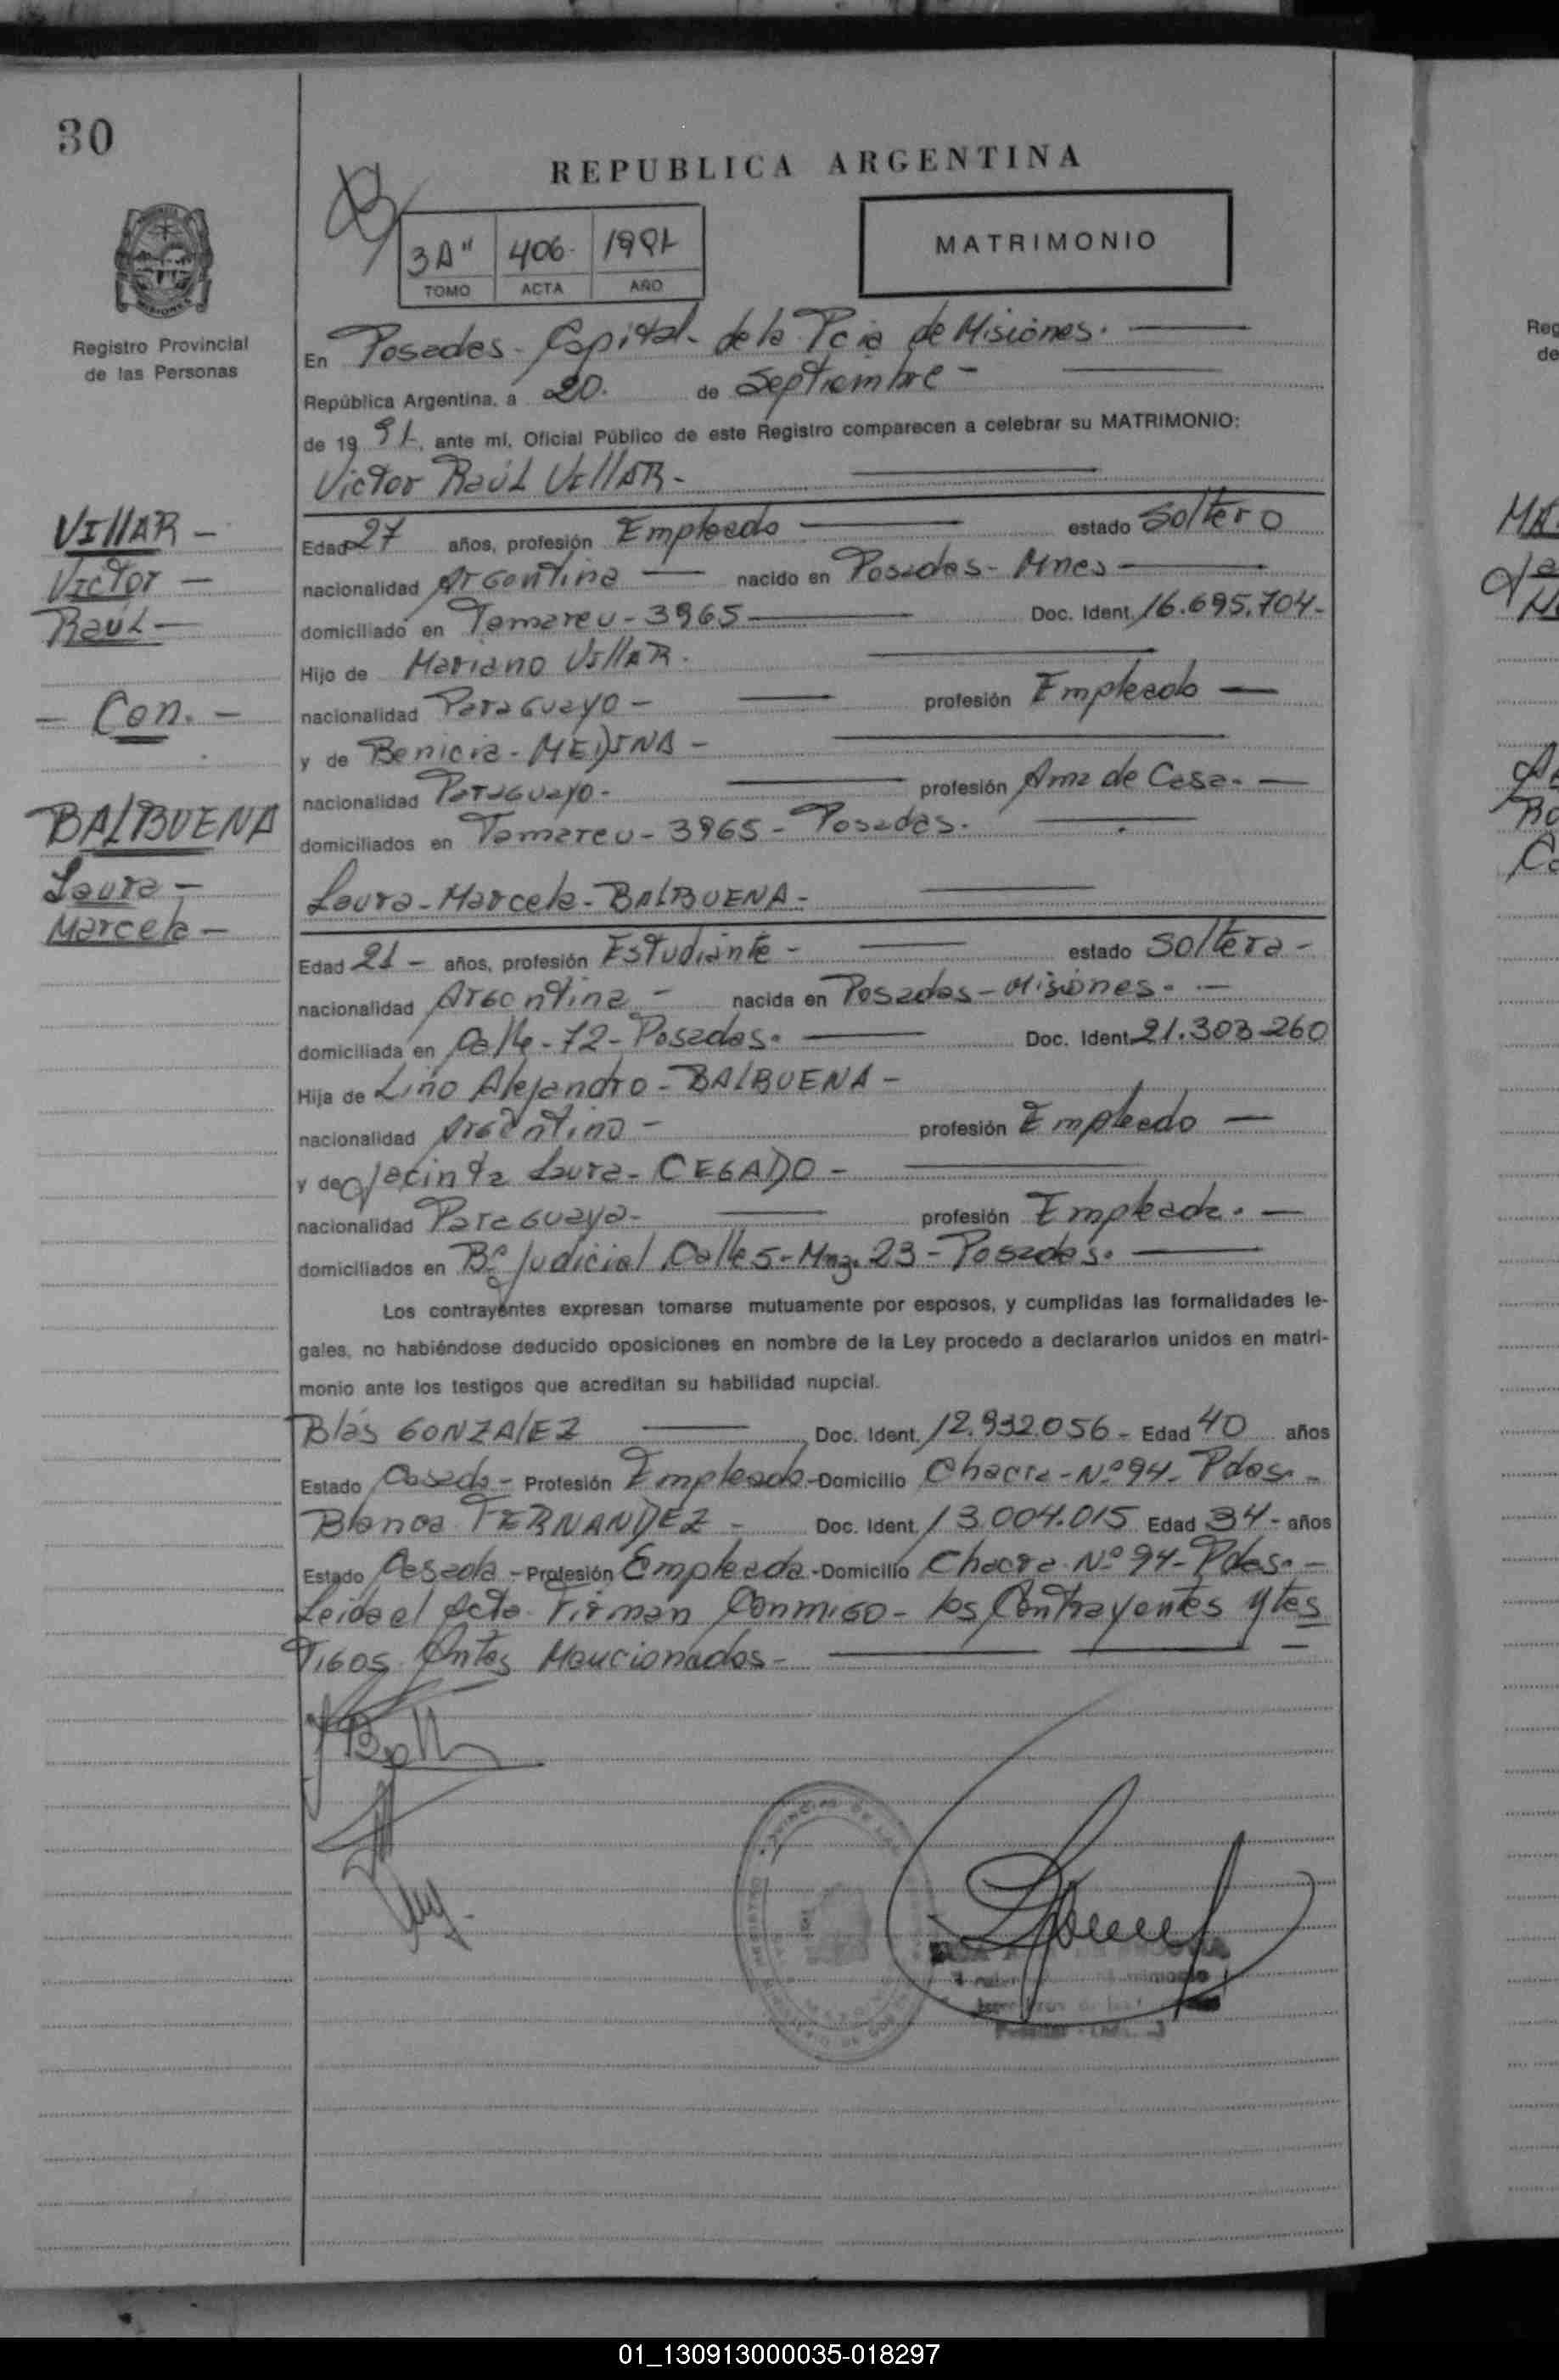 30
REPUBLICA ARGENTINA
3A" 406- 1991
TOMO ACTA AÑO
MATRIMONIO
Registro Provincial
de las Personas
En Posadas - Capital - de la Pcia de Misiones.
República Argentina, a 20. de Septiembre -
de 19 91, ante mí, Oficial Público de este Registro comparecen a celebrar su MATRIMONIO:
Victor Raúl VillAR -
VIllAR -
Victor -
Raúl -
- Con. -
BALBUENA
Laura -
Marcela -
Edad 27 años, profesión Empleado estado Soltero
nacionalidad Argentina nacido en Posadas - Mnes
domiciliado en Tamareu - 3965 Doc. Ident. 16.695.704-
Hijo de Mariano VillAR.
nacionalidad Paraguayo - profesión Empleado
y de Benicia - MEDINA -
nacionalidad Paraguayo - profesión Ama de Casa.
domiciliados en Tamareu - 3965 - Posadas.
Laura - Marcela - BALBUENA -
Edad 21 - años, profesión Estudiante - estado Soltera -
nacionalidad Argentina - nacida en Posadas - Misiones.
domiciliada en Calle - 72 - Posadas. Doc. Ident. 21.303-260
Hija de Lino Alejandro - BALBUENA -
nacionalidad Argentino - profesión Empleado
y de Jacinta Laura - CEGADO -
nacionalidad Paraguaya - profesión Empleada.
domiciliados en Bº Judicial Calle 5 - Mnz. 23 - Posadas.
Los contrayentes expresan tomarse mutuamente por esposos, y cumplidas las formalidades le-
gales, no habiéndose deducido oposiciones en nombre de la Ley procedo a declararlos unidos en matri-
monio ante los testigos que acreditan su habilidad nupcial.
Blás GONZAlEZ Doc. Ident. 12.932.056 - Edad 40 años
Estado Casado - Profesión Empleado - Domicilio Chacra - Nº 94 - Pdas. -
Blanca FERNANDEZ - Doc. Ident. 13.004.015 Edad 34 - años
Estado Casada - Profesión Empleada - Domicilio Chacra Nº 94 - Pdas. -
Leida el Acta Firman Conmigo - los Contrayentes y tes
tigos Antes Mencionados -
01_130913000035-018297